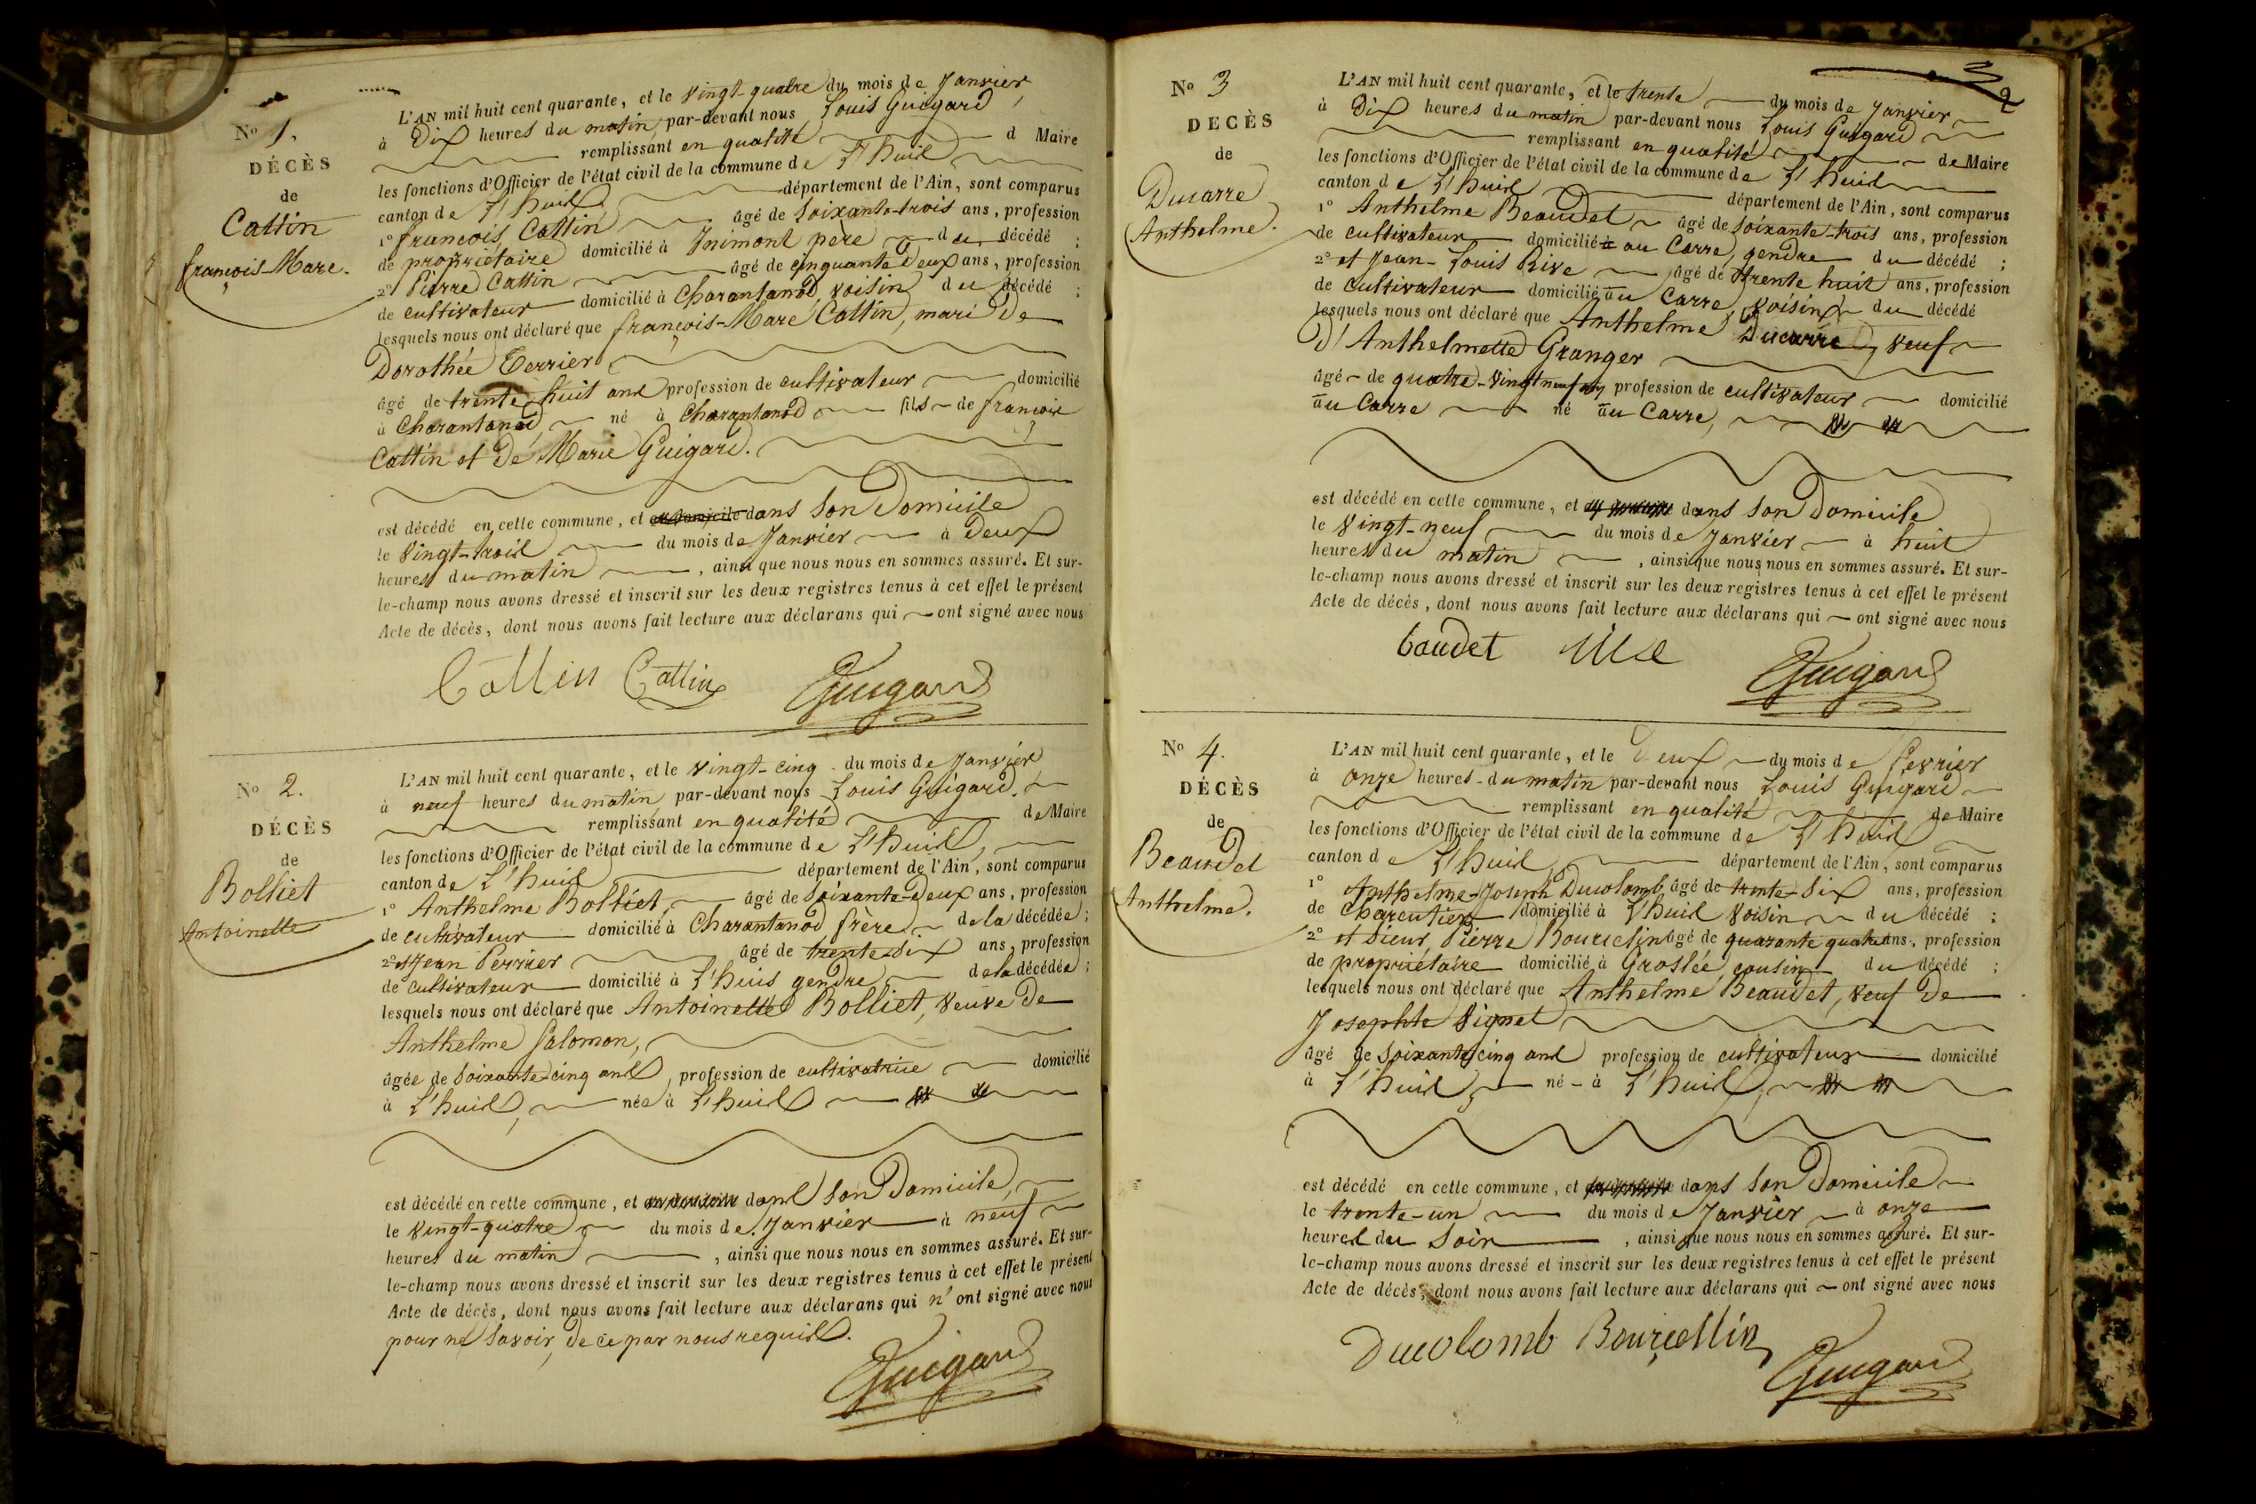 No 1.
DÉCÈS
de
Cattin
françois-Marc.
L'AN mil huit cent quarante, et le vingt-quatre du mois de Janvier
à Dix heures du matin par-devant nous Louis Guigard,
remplissant en qualité d Maire
les fonctions d'Officier de l'état civil de la commune de L'huis
canton de L'huis département de l'Ain, sont comparus
1° françois Cattin âgé de soixante-trois ans, profession
de propriétaire domicilié à Inimont père du décédé ;
2° Pierre Cattin âgé de cinquante Deux ans, profession
de cultivateur domicilié à Charantanod, voisin du décédé ;
lesquels nous ont déclaré que françois-Marc Cattin, mari De
Dorothée Terrier
âgé de trente huit ans profession de cultivateur domicilié
à Charantanod né à Charantanod fils de françois
Cattin et De Marie Guigard.
est décédé en cette commune, et dans son Domicile
le vingt-trois du mois de Janvier à Deux
heures du matin, ainsi que nous nous en sommes assuré. Et sur-
le-champ nous avons dressé et inscrit sur les deux registres tenus à cet effet le présent
Acte de décès, dont nous avons fait lecture aux déclarans qui ont signé avec nous
Cattin Cattin Guigard
No 2.
DÉCÈS
de
Bolliet
Antoinette
L'AN mil huit cent quarante, et le vingt-cinq du mois de Janvier
à neuf heures du matin par-devant nous Louis Guigard.
remplissant en qualité de Maire
les fonctions d'Officier de l'état civil de la commune de L'huis,
canton de L'huis département de l'Ain, sont comparus
1° Anthelme Bolliet, âgé de soixante-Deux ans, profession
de cultivateur domicilié à Charantanod frère de la décédée ;
2° et Jean Perrier âgé de trente-six ans, profession
de cultivateur domicilié à L'huis gendre de la décédée ;
lesquels nous ont déclaré que Antoinette Bolliet, veuve De
Anthelme Salomon,
âgée de soixante-cinq ans, profession de cultivatrice domicilié
à L'huis, née à L'huis
est décédé en cette commune, et dans son Domicile,
le vingt-quatre du mois de Janvier à neuf
heures du matin, ainsi que nous nous en sommes assuré. Et sur-
le-champ nous avons dressé et inscrit sur les deux registres tenus à cet effet le présent
Acte de décès, dont nous avons fait lecture aux déclarans qui n'ont signé avec nous
pour ne savoir, de ce par nous requis.
Guigard
2
No 3
DÉCÈS
de
Ducarre
Anthelme.
L'AN mil huit cent quarante, et le trente du mois de Janvier
à Dix heures du matin par-devant nous Louis Guigard
remplissant en qualité de Maire
les fonctions d'Officier de l'état civil de la commune de L'huis
canton de L'huis département de l'Ain, sont comparus
1° Anthelme Beaudet âgé de soixante-trois ans, profession
de cultivateur domicilié au Carre, gendre du décédé ;
2° et Jean-Louis Rive âgé de trente huit ans, profession
de cultivateur domicilié au Carre, voisin du décédé
lesquels nous ont déclaré que Anthelme Ducarre, veuf
D'Anthelmette Granger
âgé de quatre-vingt neuf ans profession de cultivateur domicilié
au Carre né au Carre,
est décédé en cette commune, et dans son Domicile
le vingt-neuf du mois de Janvier à huit
heures du matin, ainsi que nous nous en sommes assuré. Et sur-
le-champ nous avons dressé et inscrit sur les deux registres tenus à cet effet le présent
Acte de décès, dont nous avons fait lecture aux déclarans qui ont signé avec nous
baudet rive Guigard
No 4.
DÉCÈS
de
Beaudet
Anthelme.
L'AN mil huit cent quarante, et le Deux du mois de fevrier
à onze heures du matin par-devant nous Louis Guigard
remplissant en qualité de Maire
les fonctions d'Officier de l'état civil de la commune de L'huis
canton de L'huis département de l'Ain, sont comparus
1° Anthelme-Joseph Ducolomb, âgé de trente-six ans, profession
de Charcutier domicilié à L'huis voisin du décédé ;
2° et sieur Pierre Bourcelin âgé de quarante quatre ans, profession
de propriétaire domicilié à Groslée, cousin du décédé ;
lesquels nous ont déclaré que Anthelme Beaudet, veuf De
Josephte Vignet
âgé de soixante cinq ans profession de cultivateur domicilié
à L'huis, né à L'huis,
est décédé en cette commune, et dans son Domicile
le trente-un du mois de Janvier à onze
heures du soir, ainsi que nous nous en sommes assuré. Et sur-
le-champ nous avons dressé et inscrit sur les deux registres tenus à cet effet le présent
Acte de décès, dont nous avons fait lecture aux déclarans qui ont signé avec nous
Ducolomb Bourcellin Guigard